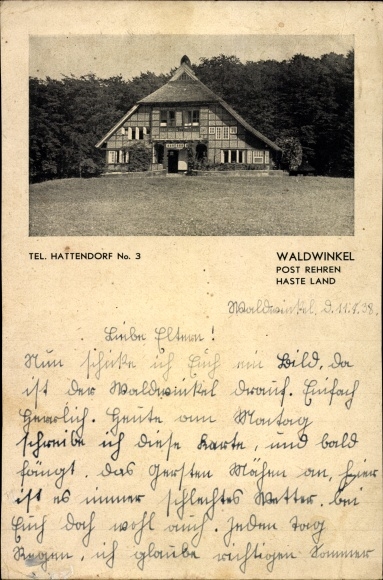 TEL. HATTENDORF No. 3
WALDWINKEL
POST REHREN
HASTE LAND
Waldwinkel, d. 11.7.38.
Liebe Eltern!
Nun schicke ich Euch ein Bild, da
ist der Waldwinkel drauf. Einfach
Herrlich. Heute am Montag
schreibe ich diese Karte, und bald
fängt das Gersten Mähen an, hier
ist es immer schlechtes Wetter. bei
Euch doch wohl auch. jeden Tag
Regen, ich glaube richtigen Sommer